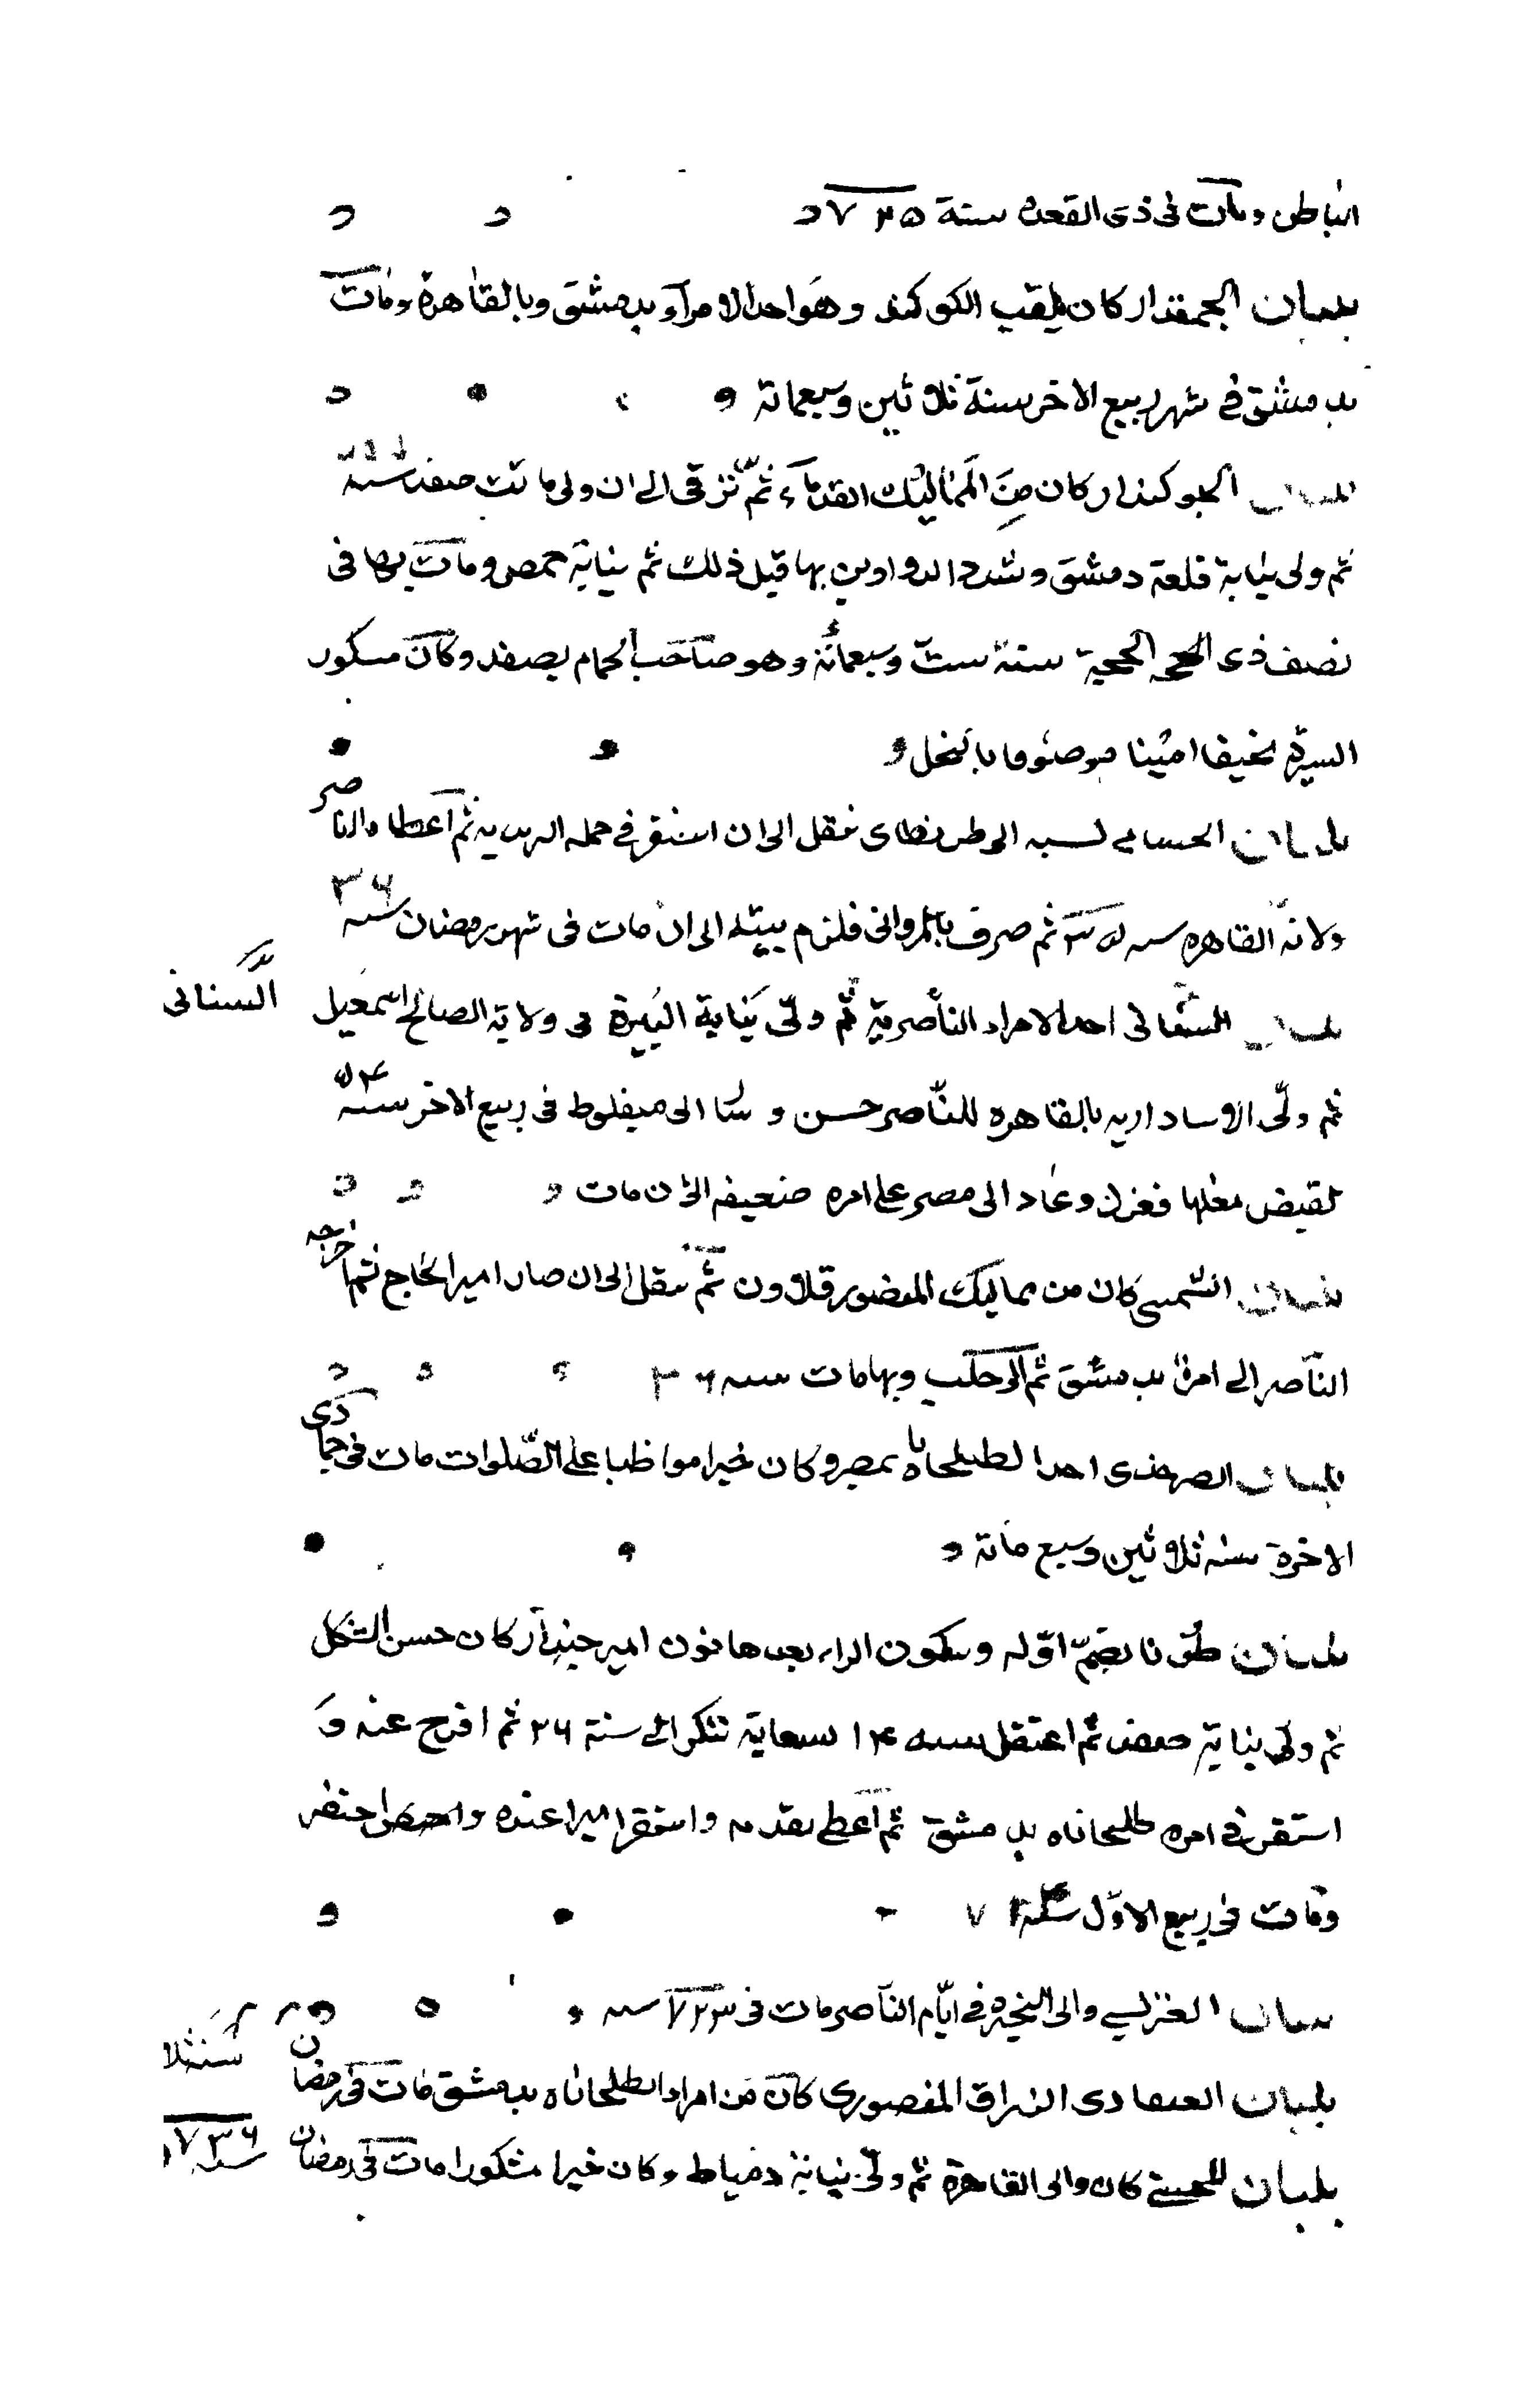 الباطن ومات فى ذى القعدة سنة ٧٣٥
بلبان الجمقدار كان يلقب الكركند وهو احد الامراء بدمشق وبالقاهرة ومات
بدمشق فى شهر ربيع الاخر سنة ثلاثين وسبعمائة
بلبان الجوكندار كان من المماليك القدماء ثم ترقى الى ان ولى نيابت صفد سنة
ثم ولى نيابة قلعة دمشق وشد الدواوين بها قبل ذلك ثم نيابة حمص ومات بها فى
نصف ذى الحجة سنة ست وسبعمائة وهو صاحب الحمام بصفد وكان مشكور
السيرة امينا موصوفا بالبخل
بلبان الحسامى نسبه الى طرنطاى تنقل الى ان استقر فى جمله البريديه ثم اعطاه الناصر
ولاية القاهره سنه ثم صرف بالمروانى فلزم بيته الى ان مات فى شهر رمضان سنه ٣٦
بلبان السنانى احد الامراء الناصرية ثم ولى نيابة البيرة فى ولاية الصالح اسمعيل
السنانى
ثم ولى الاستاداريه بالقاهره للناصر حسن و الى منفلوط فى ربيع الاخر سنة ٥٤
لقبض مغلها فعزل وعاد الى مصر على امره ضعيفه الى ان مات
بلبان الشمسى كان من مماليك المنصور قلاون ثم تنقل الى ان صار امير الحاج ثم اخرجه
الناصر الى امرة بدمشق ثم الى حلب وبها مات سنه ٣٦
بلبان الصرخدى احد الطبلخاناه بمصر وكان خيرا مواظبا على الصلوات مات فى جمادى
الاخرة سنه ثلاثين وسبع مائة
بلبان طرنا بضم اوله وسكون الراء بعدها نون امير جندار كان حسن الشكل
ثم ولى نيابة صفد ثم اعتقل سنه ١٤ بسعاية تنكز الى سنة ٢٦ ثم افرج عنه و
استقر فى امره طبلخاناه بدمشق ثم اعطى تقدمه واستقر اميرا عنده
ومات فى ربيع الاول سنة
بلبان والى البحيره فى ايام الناصر مات فى سنه ٧٢٣
بلبان المنصورى كان من امراء الطبلخاناه بدمشق مات فى رمضان
بلبان المحسنى كان والى القاهرة ثم ولى نيابة دمياط وكان خيرا مشكورا مات فى رمضان سنه ٧٣٦